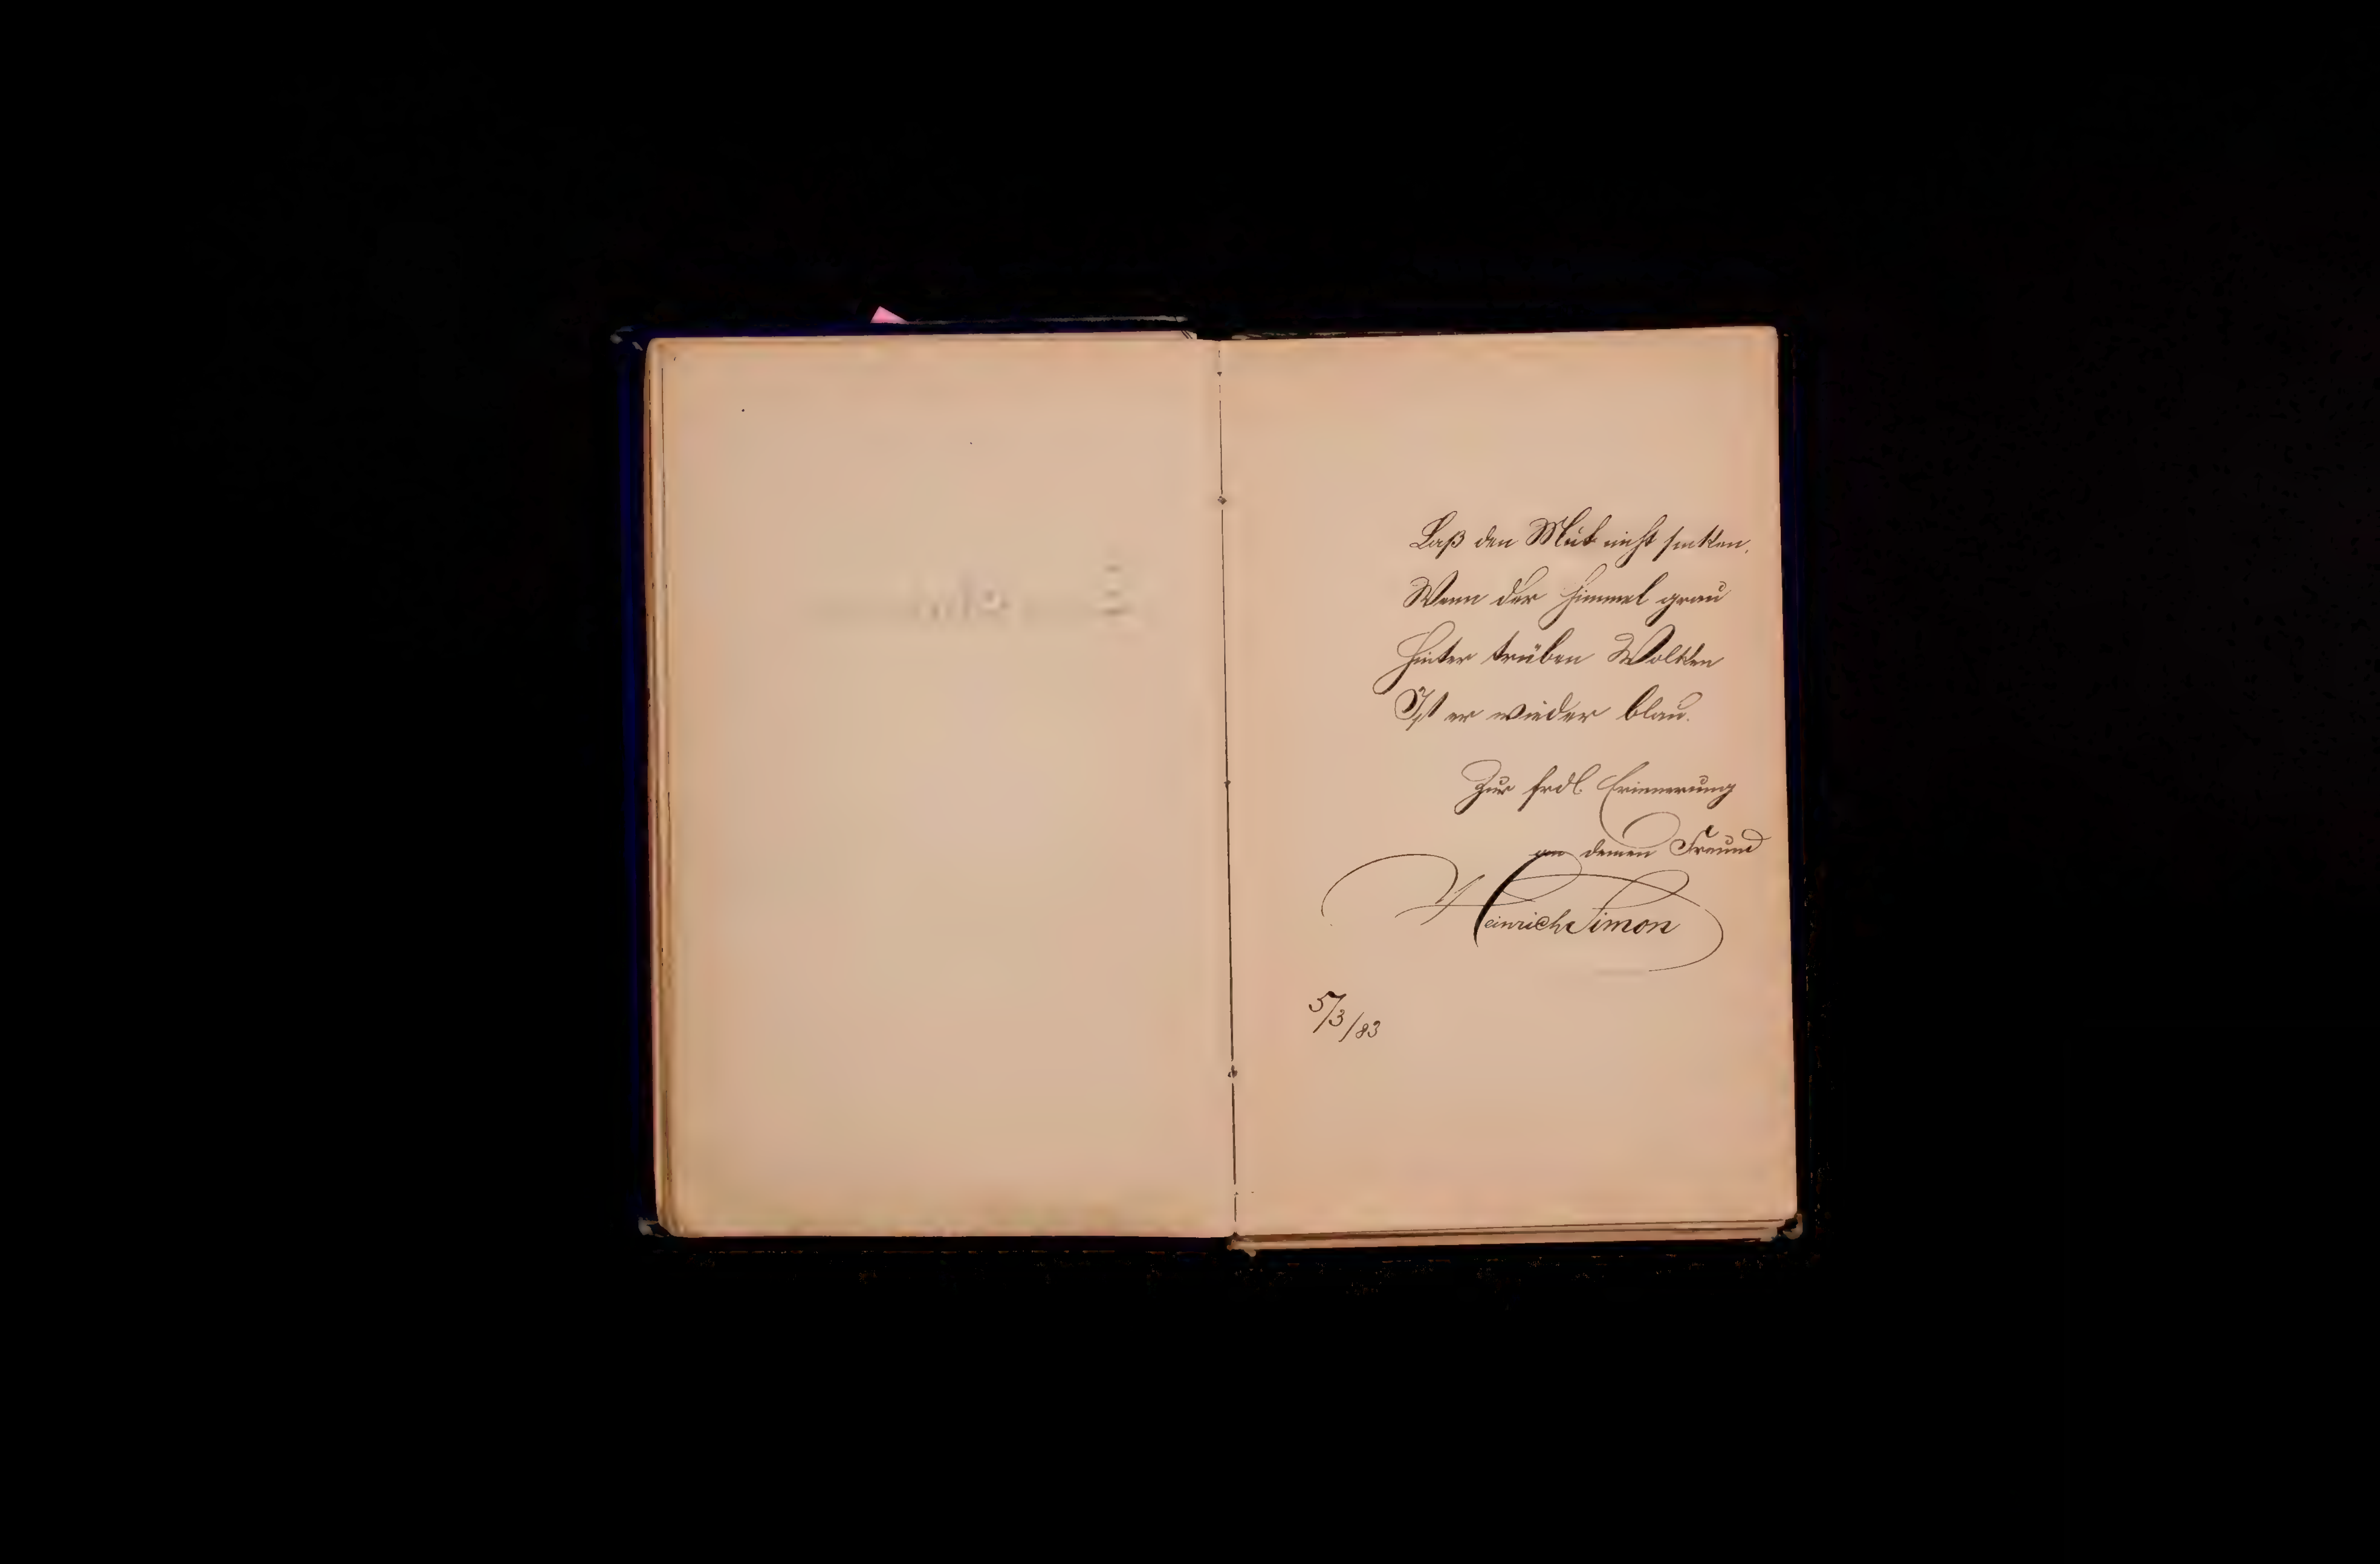 Laß den Mut nicht sinken,
Wenn der Himmel grau
Hinter trüben Wolken
Ist er wieder blau.
Zur frdl. Erinnerung
an deinen Freund
Heinrich Simon
5/3/83